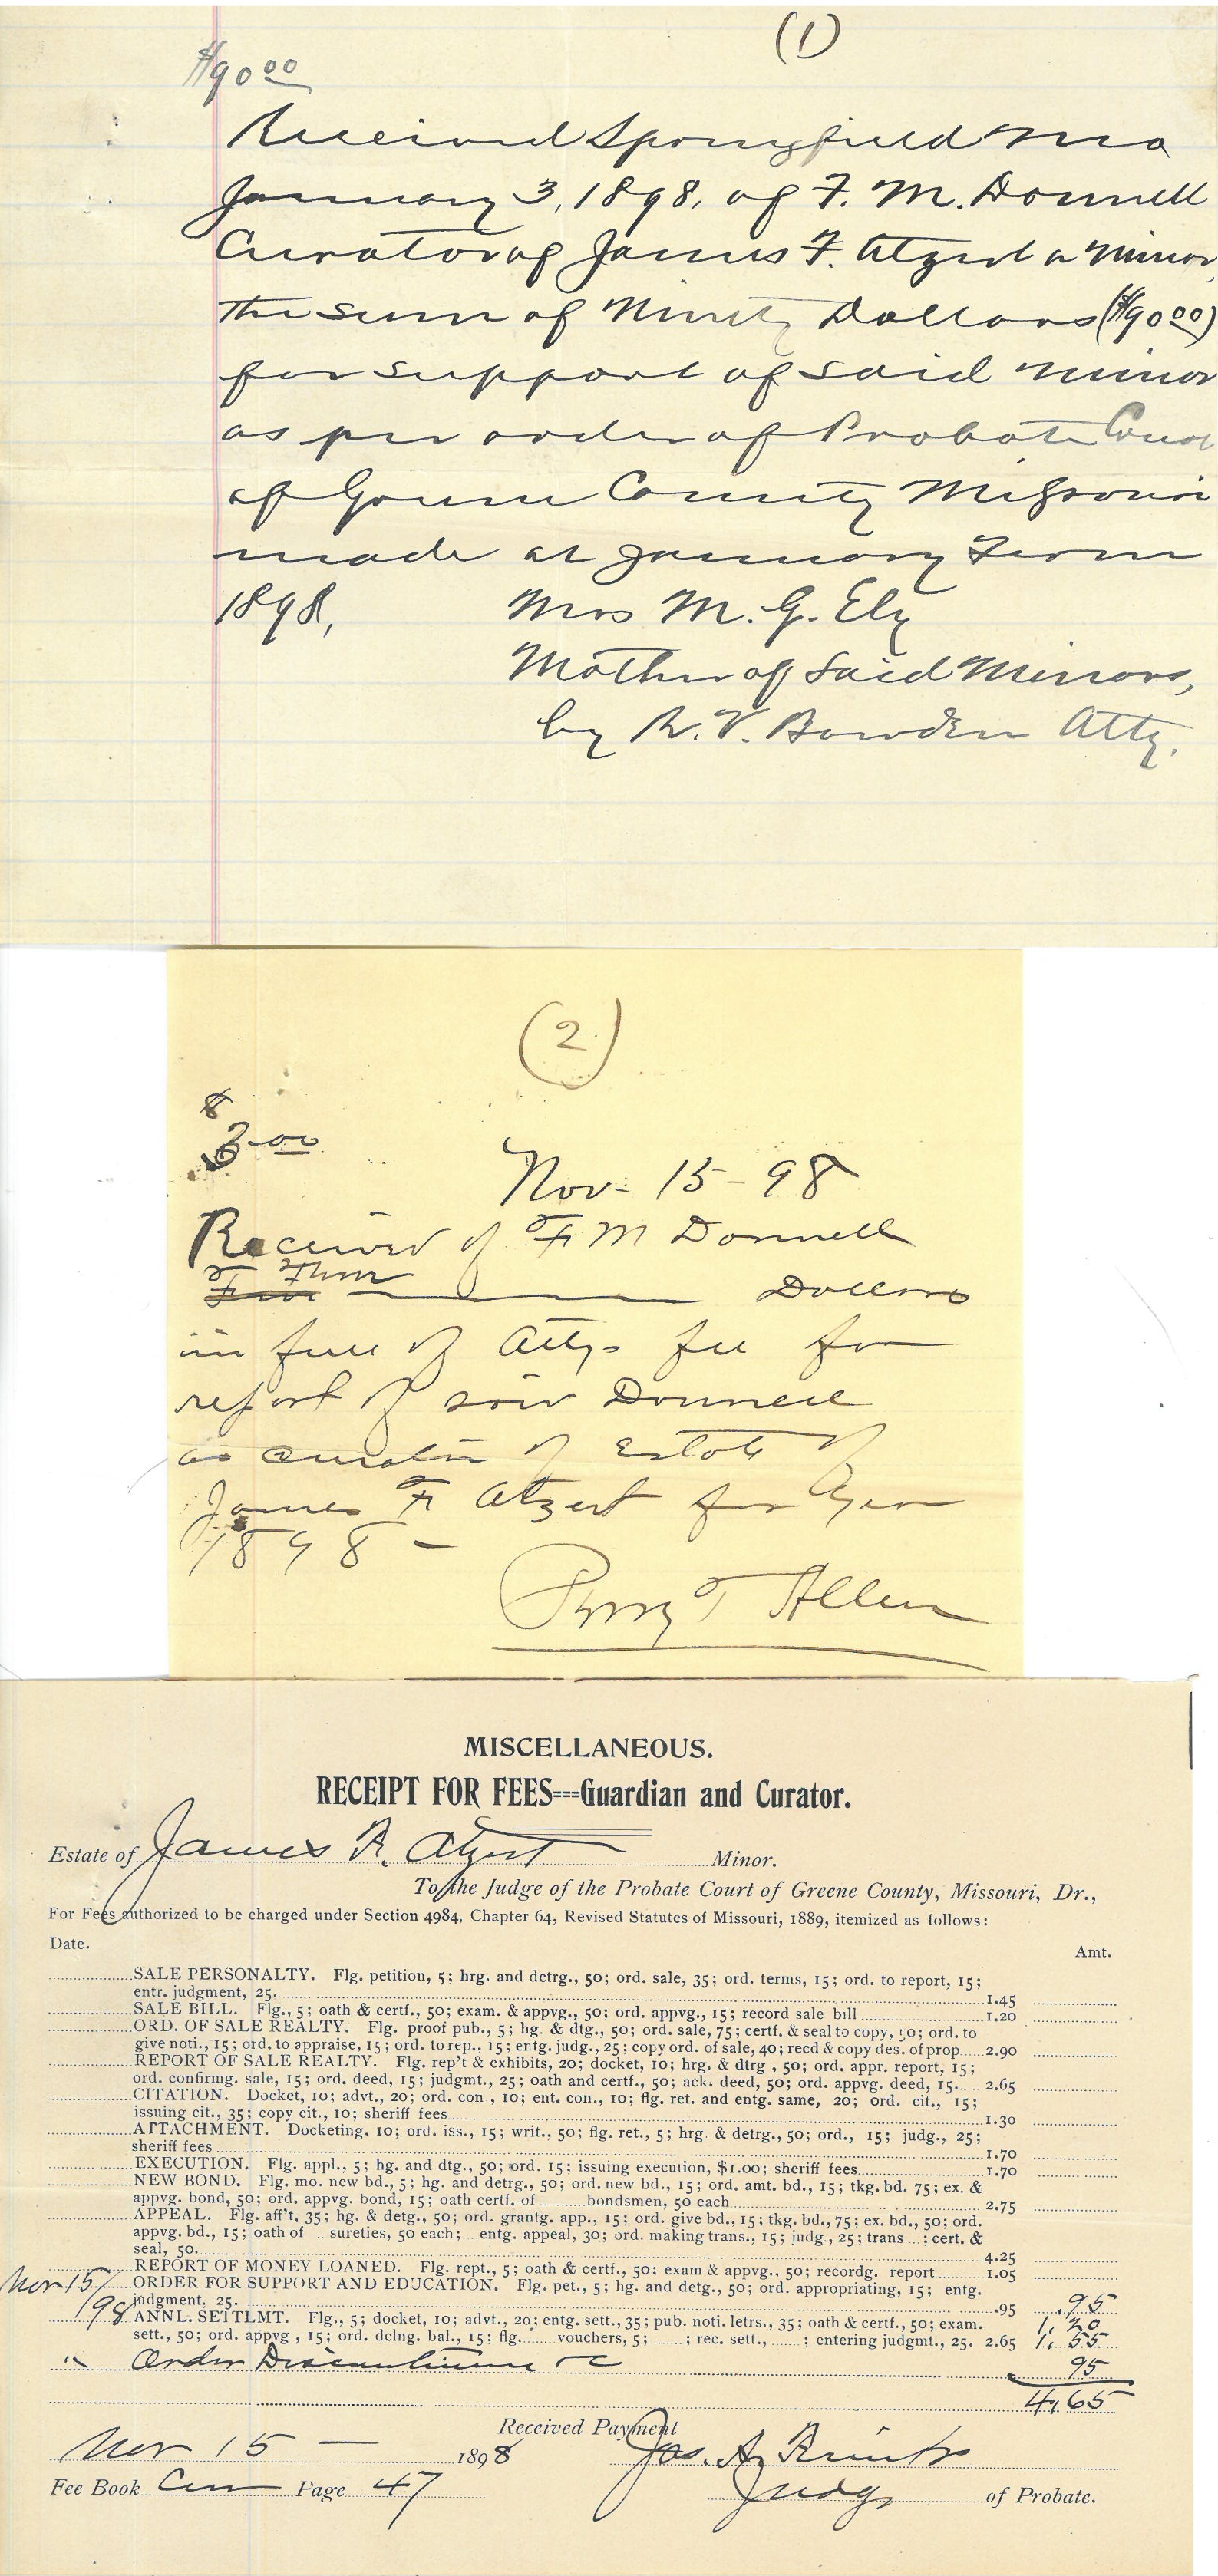 (1)
$90 00
Received Springfield Mo
January 3, 1898, of F. M. Donnell
Curator of James F. Atzert a minor,
the sum of Ninety Dollars ($90 00)
for support of said minor
as per order of Probate Court
of Greene County Missouri
made at January Term
1898, Mrs M. G. Ely
Mother of Said Minors,
by R. V. Bowden Atty.
(2)
$
3 00
Nov - 15 - 98
Received of F M Donnell
Three Dollars
in full of Attys fee for
report of said Donnell
as curator of Estate of
James F Atzert for year
1898 -
Perry T Allen
MISCELLANEOUS.
RECEIPT FOR FEES===Guardian and Curator.
Estate of James F. Atzert Minor.
To the Judge of the Probate Court of Greene County, Missouri, Dr.,
For Fees authorized to be charged under Section 4984, Chapter 64, Revised Statutes of Missouri, 1889, itemized as follows:
Date. Amt.
SALE PERSONALTY. Flg. petition, 5; hrg. and detrg., 50; ord. sale, 35; ord. terms, 15; ord. to report, 15;
entr. judgment, 25. 1.45
SALE BILL. Flg., 5; oath & certf., 50; exam. & appvg., 50; ord. appvg., 15; record sale bill 1.20
ORD. OF SALE REALTY. Flg. proof pub., 5; hg. & dtg., 50; ord. sale, 75; certf. & seal to copy, 50; ord. to
give noti., 15; ord. to appraise, 15; ord. to rep., 15; entg. judg., 25; copy ord. of sale, 40; recd & copy des. of prop. 2.90
REPORT OF SALE REALTY. Flg. rep't & exhibits, 20; docket, 10; hrg. & dtrg, 50; ord. appr. report, 15;
ord. confirmg. sale, 15; ord. deed, 15; judgmt., 25; oath and certf., 50; ack. deed, 50; ord. appvg. deed, 15. 2.65
CITATION. Docket, 10; advt., 20; ord. con, 10; ent. con., 10; flg. ret. and entg. same, 20; ord. cit., 15;
issuing cit., 35; copy cit., 10; sheriff fees 1.30
ATTACHMENT. Docketing, 10; ord. iss., 15; writ., 50; flg. ret., 5; hrg. & detrg., 50; ord., 15; judg., 25;
sheriff fees 1.70
EXECUTION. Flg. appl., 5; hg. and dtg., 50; ord. 15; issuing execution, $1.00; sheriff fees 1.70
NEW BOND. Flg. mo. new bd., 5; hg. and detrg., 50; ord. new bd., 15; ord. amt. bd., 15; tkg. bd. 75; ex. &
appvg. bond, 50; ord. appvg. bond, 15; oath certf. of bondsmen, 50 each 2.75
APPEAL. Flg. aff't, 35; hg. & detg., 50; ord. grantg. app., 15; ord. give bd., 15; tkg. bd., 75; ex. bd., 50; ord.
appvg. bd., 15; oath of sureties, 50 each; entg. appeal, 30; ord. making trans., 15; judg., 25; trans ; cert. &
seal, 50. 4.25
REPORT OF MONEY LOANED. Flg. rept., 5; oath & certf., 50; exam & appvg., 50; recordg. report 1.05
Nov 15/ ORDER FOR SUPPORT AND EDUCATION. Flg. pet., 5; hg. and detg., 50; ord. appropriating, 15; entg.
judgment, 25. .95 .95
/98 ANNL. SETTLMT. Flg., 5; docket, 10; advt., 20; entg. sett., 35; pub. noti. letrs., 35; oath & certf., 50; exam. 1.20
sett., 50; ord. appvg, 15; ord. dclng. bal., 15; flg. vouchers, 5; ; rec. sett., ; entering judgmt., 25. 2.65 1.55
" Order 95
4.65
Received Payment
Nov 15 — 1898 Jos. A.
Fee Book Page 47 Judge of Probate.